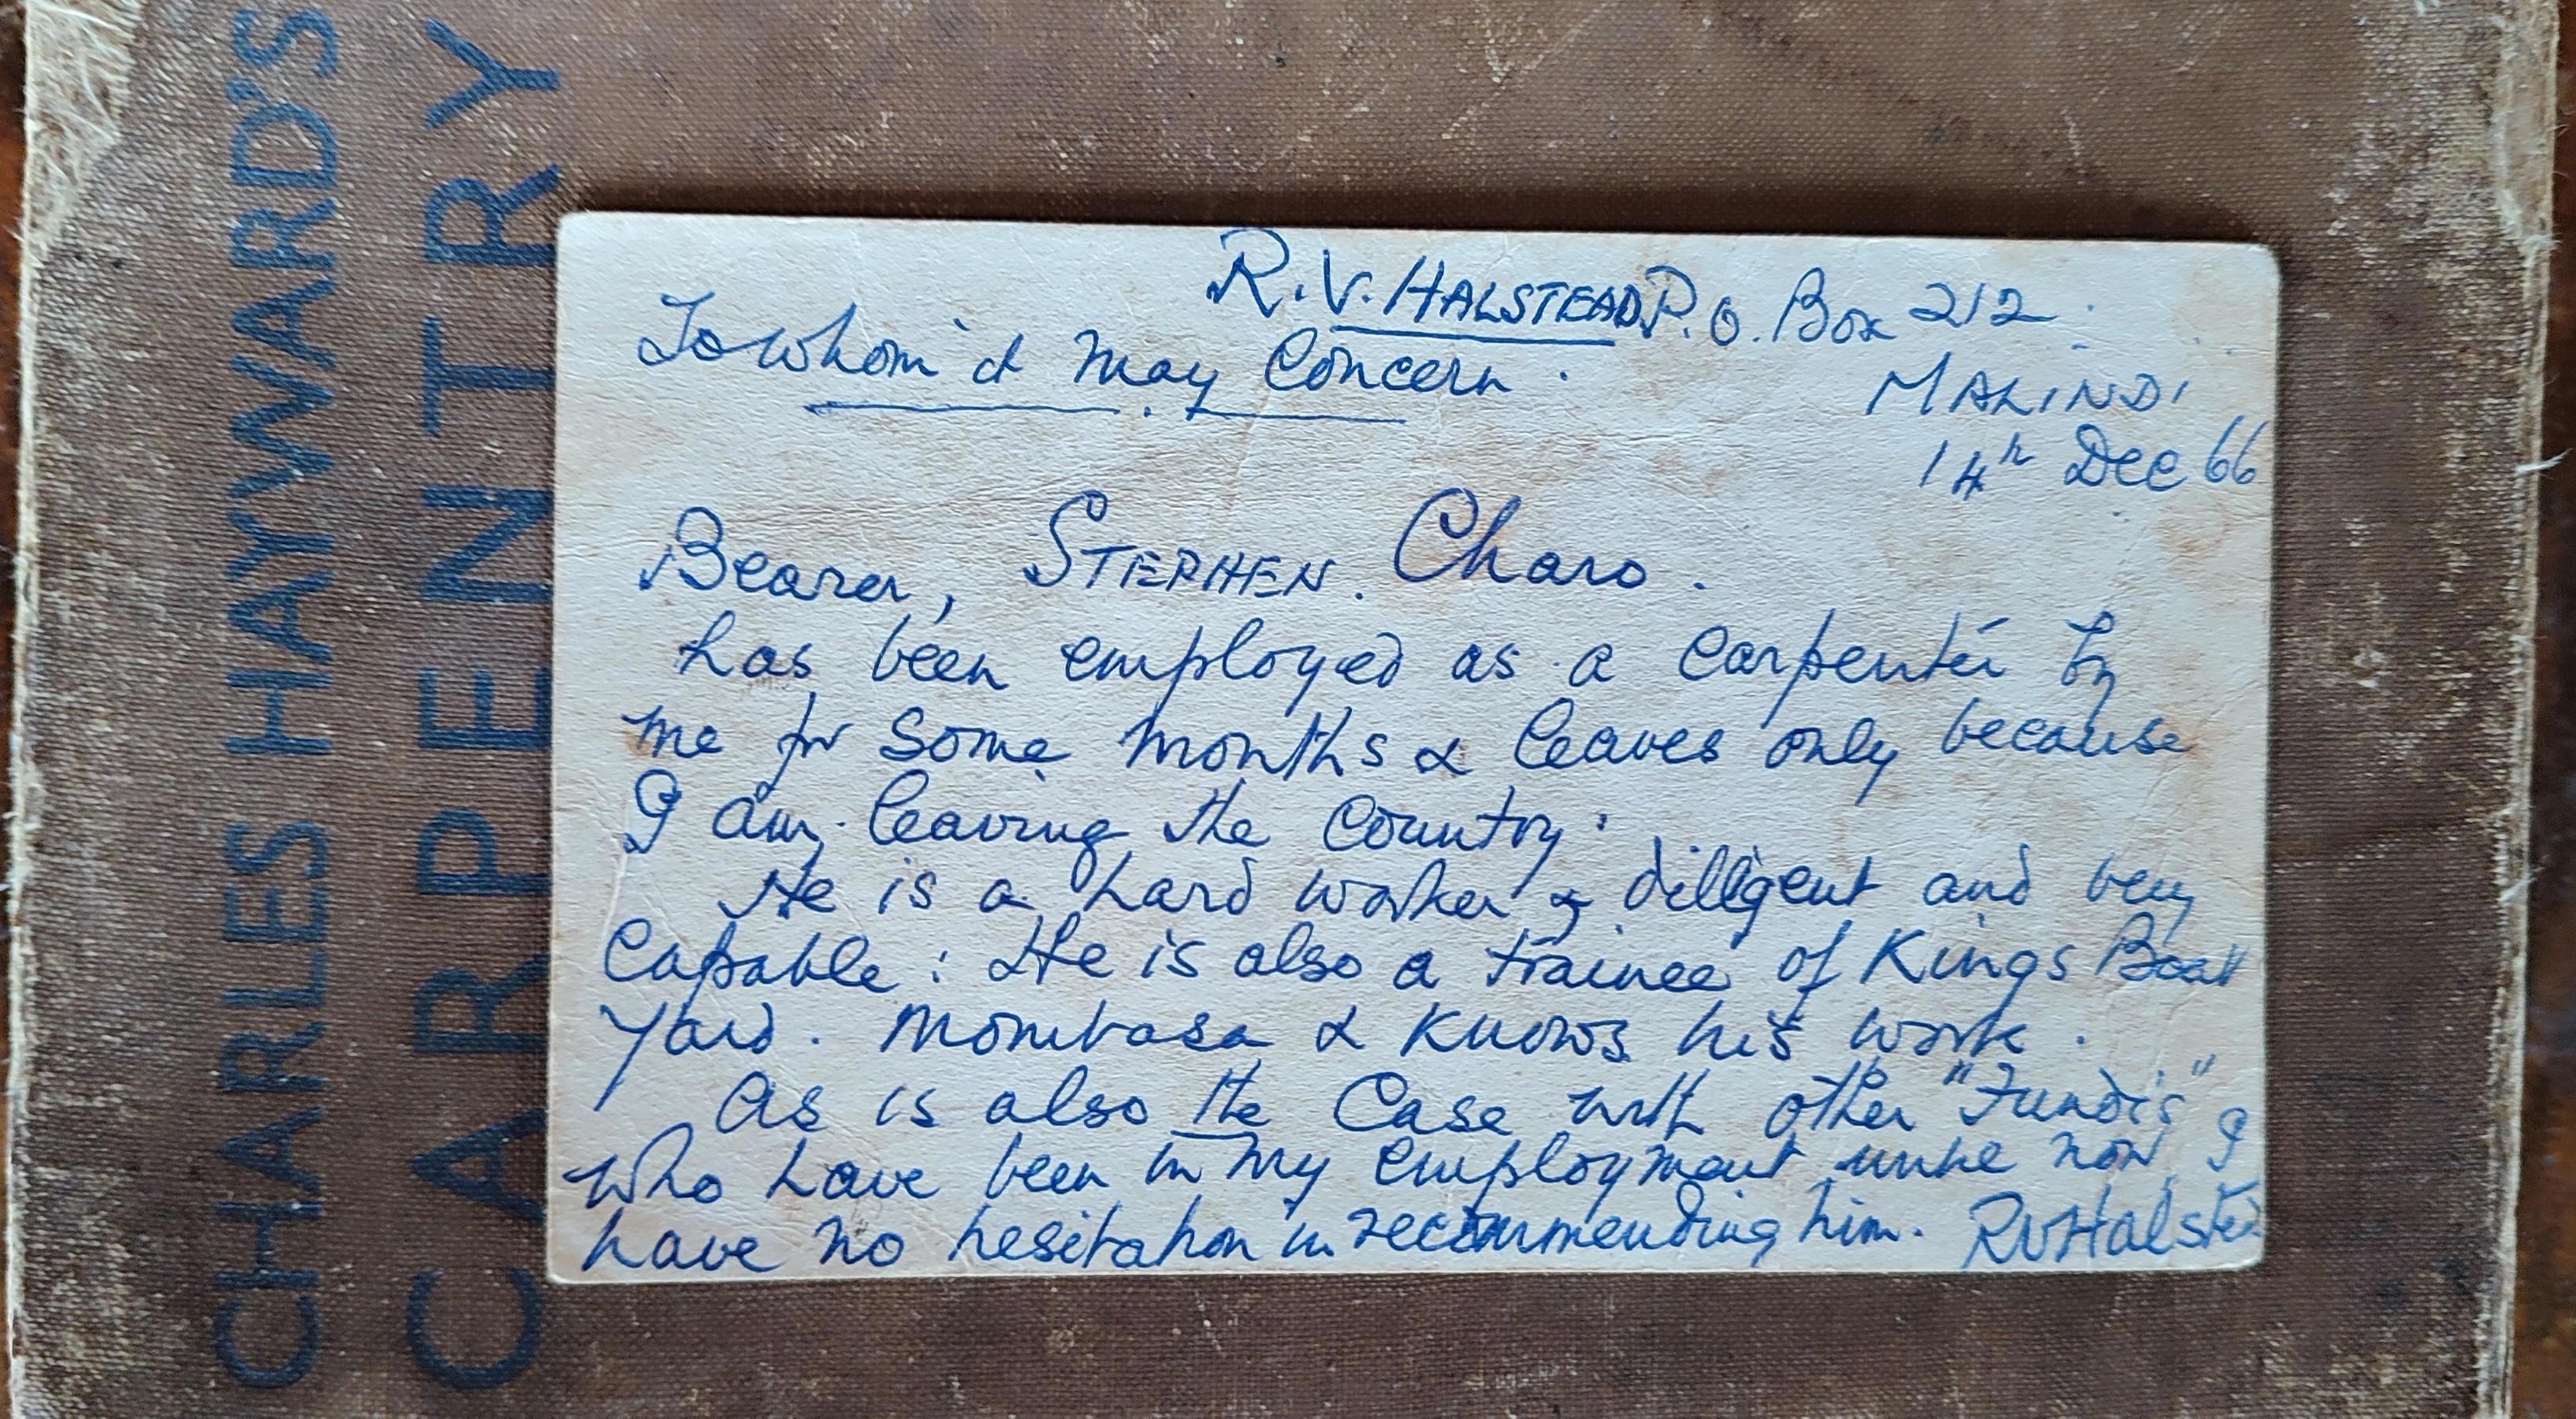 CHARLES HAYWARD'S
CARPENTRY
R.V. HALSTEAD P.O. Box 212
To whom it may Concern.
MALINDI
14th Dec 66
Bearer, STEPHEN. Charo.
has been employed as a carpenter by
me for some months & leaves only because
I am leaving the country.
He is a hard worker & dilligent and very
Capable: He is also a trainee of Kings Boat
Yard. Mombasa & knows his work.
As is also the case with other "Fundis"
who have been in my employment until now, I
have no hesitation in recommending him. RVHalstead